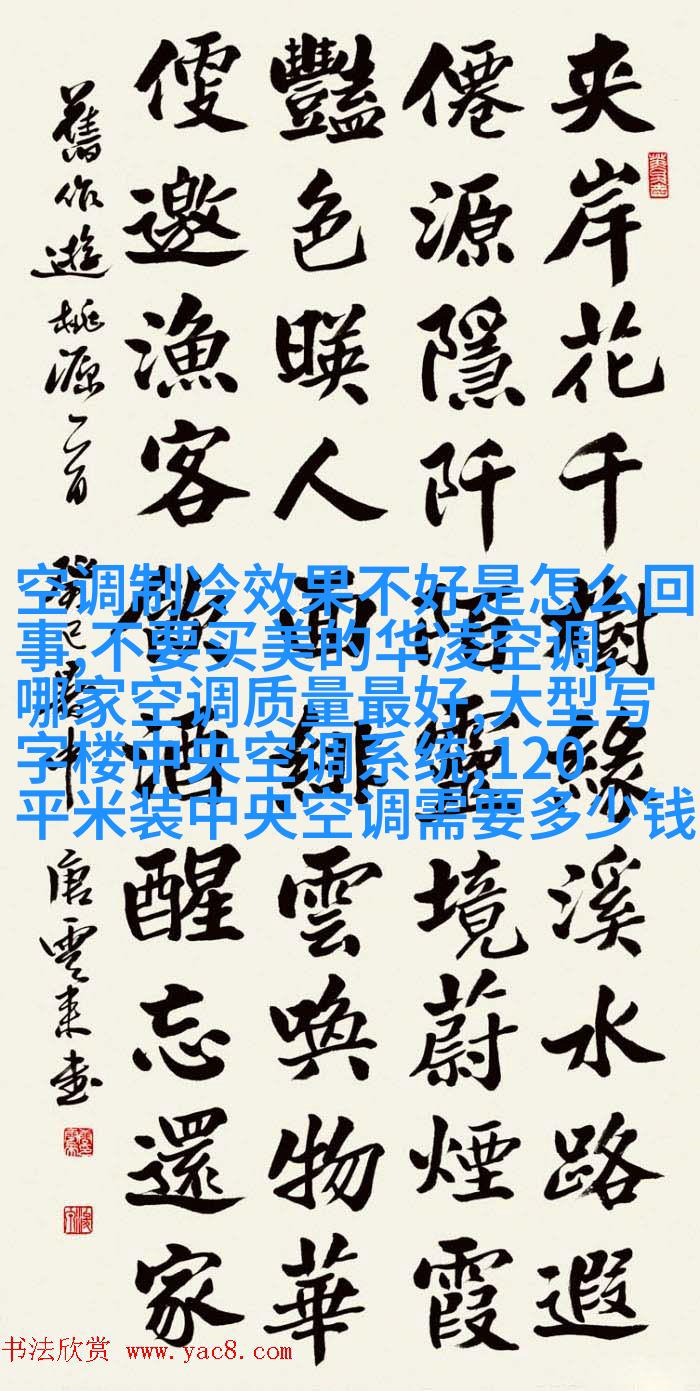 夹岸花千樹緣溪水路遐
僊源隱阡陌靈境蔚煙霞
豔色暎人面緋雲喚物華
便邀漁客酒醒忘還家
舊作遊桃源二首 癸巳春中 唐雲来書
空调制冷效果不好是怎么回
事,不要买美的华凌空调,
哪家空调质量最好,大型写
字楼中央空调系统,120
平米装中央空调需要多少钱
书法欣赏 www.yac8.com